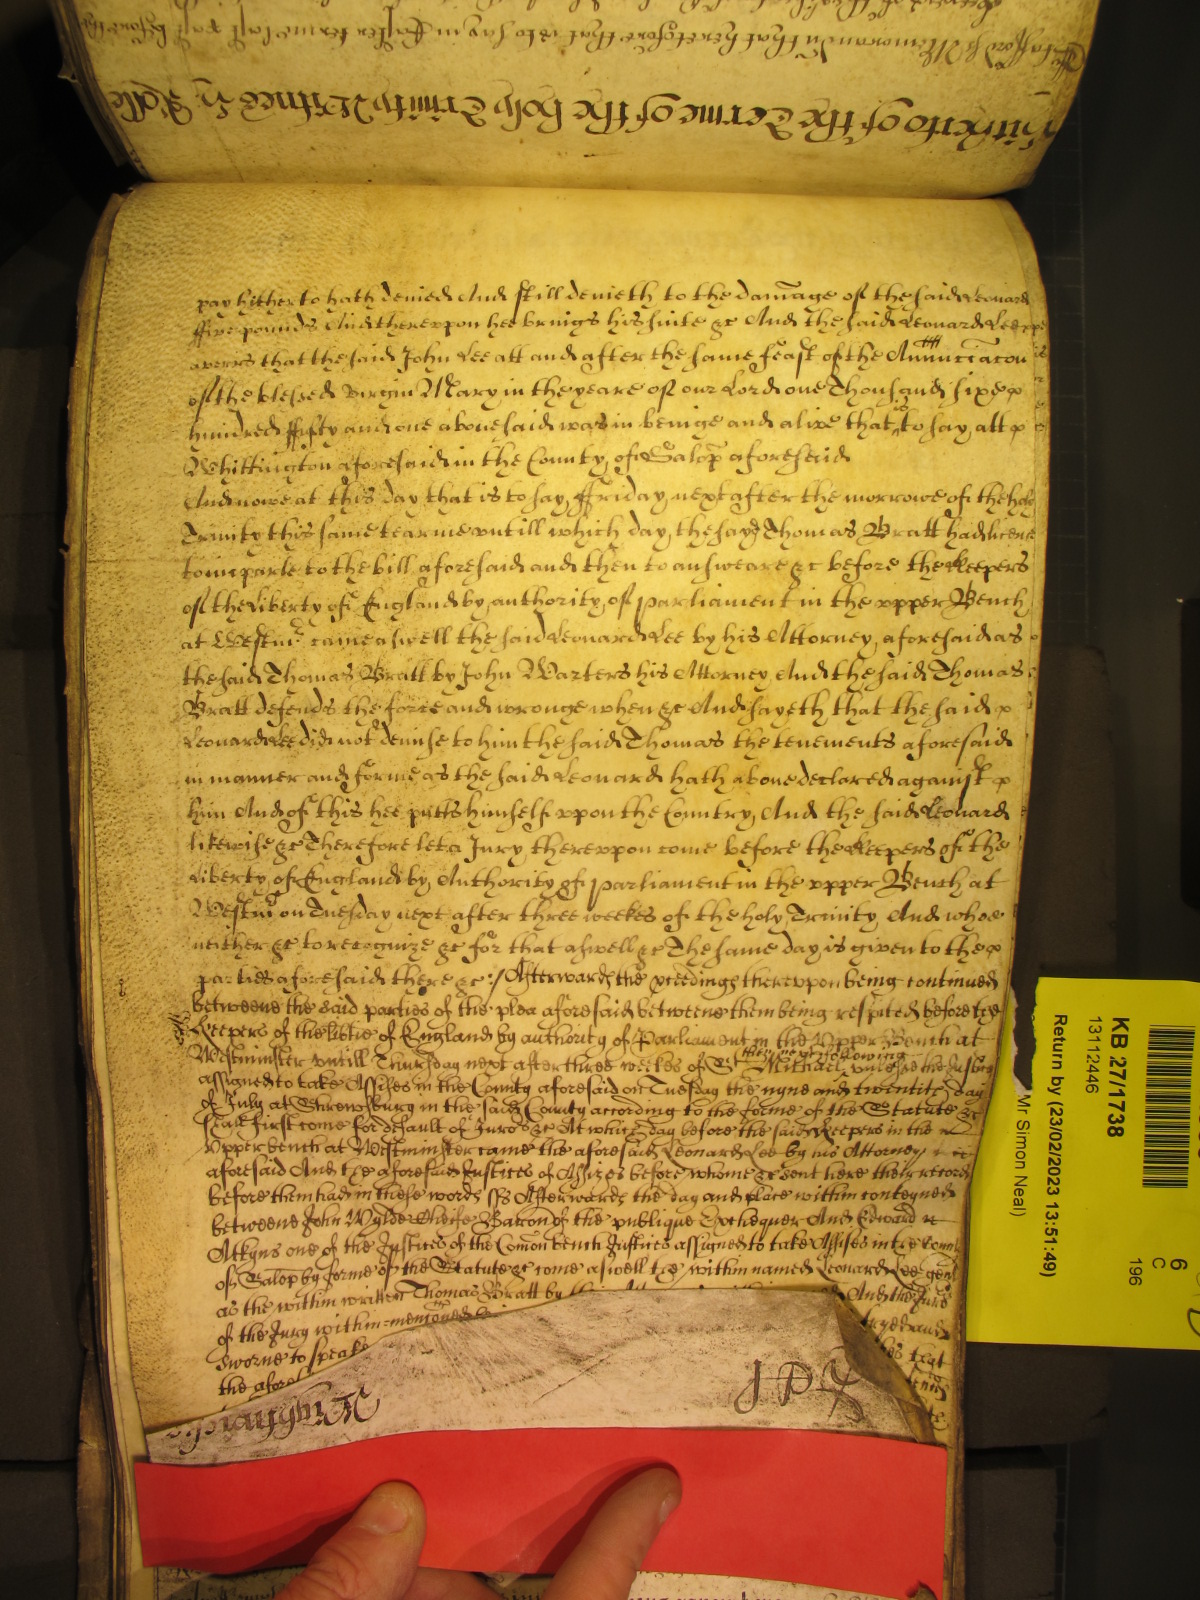 Hitherto of the Terme of the holy Trinity Witnes H: Rolle
Stafford ss Memorandu that heretofore that is to say in Easter terme last past before the
pay hitherto hath denied And still denieth to the damage of the said Leonard
ffive pounds And thereupon hee brings his suite &c And the said Leonard Lee
averrs that the said John Lee att and after the same feast of the Annunciacon
of the blessed virgin Mary in the yeare of our Lord one Thousand sixe
hundred ffifty and one abovesaid was in beinge and alive that is to say att
Whittington aforesaid in the County of Salop aforesaid
And nowe at this day that is to say ffriday next after the morrowe of the holy
Trinity this same tearme untill which day the sayd Thomas Bratt had licence
to imparle to the bill aforesaid and then to answeare &c before the Keepers
of the Liberty of England by authority of parliament in the upper Bench
at Westmr came aswell the said Leonard Lee by his Attorney aforesaid as
the said Thomas Bratt by John Warters his Attorney And the said Thomas
Bratt defends the force and wronge when &c And sayeth that the said
Leonard Lee did not demise to him the said Thomas the tenements aforesaid
in manner and forme as the said Leonard hath above declared against
him And of this hee putts himself upon the Country And the said Leonard
likewise &c Therefore let a Jury thereupon come before the Keepers of the
Liberty of England by Authority of parliament in the upper Bench at
Westmr on Tuesday next after three weekes of the holy Trinity And whoe
neither &c to recognize &c for that aswell &c The same day is given to the
parties aforesaid there &c :/ Afterwards the pceedings thereupon being continued
betweene the said parties of the plea aforesaid betweene them being respited before the
Keepers of the Libtie of England by authority of Parliament in the Upper Bench at
Westminster untill Thursday next after three weekes of St Michael then next following unlesse the Justices
assigned to take Assises in the County aforesaid on Tuesday the nyne and twentith day
of July at Shrewsbury in the said County according to the forme of the Statute &c
shall first come for default of Jurors &c At which day before the said Keepers in the
Upper bench at Westminster came the aforesaid Leonard Lee by his Attorney
aforesaid And the aforesaid Justices of Assizes before whome &c sent here their record
before them had in these words ss Afterwards the day and place within conteyned
betweene John Wylde Cheife Baron of the publique Exchequer And Edward
Atkyns one of the Justices of the Comon bench Justices assigned to take Assises in the County
of Salop by forme of the Statute &c come aswell the within named Leonard Lee gent
as the within written Thomas Bratt by And the Jurors
of the Jury within-menconed tryed and
sworne to speake that
the afores
KB 27/1738
13112446
Return by (23/02/2023 13:51:49)
Mr Simon Neal)
6
C
196